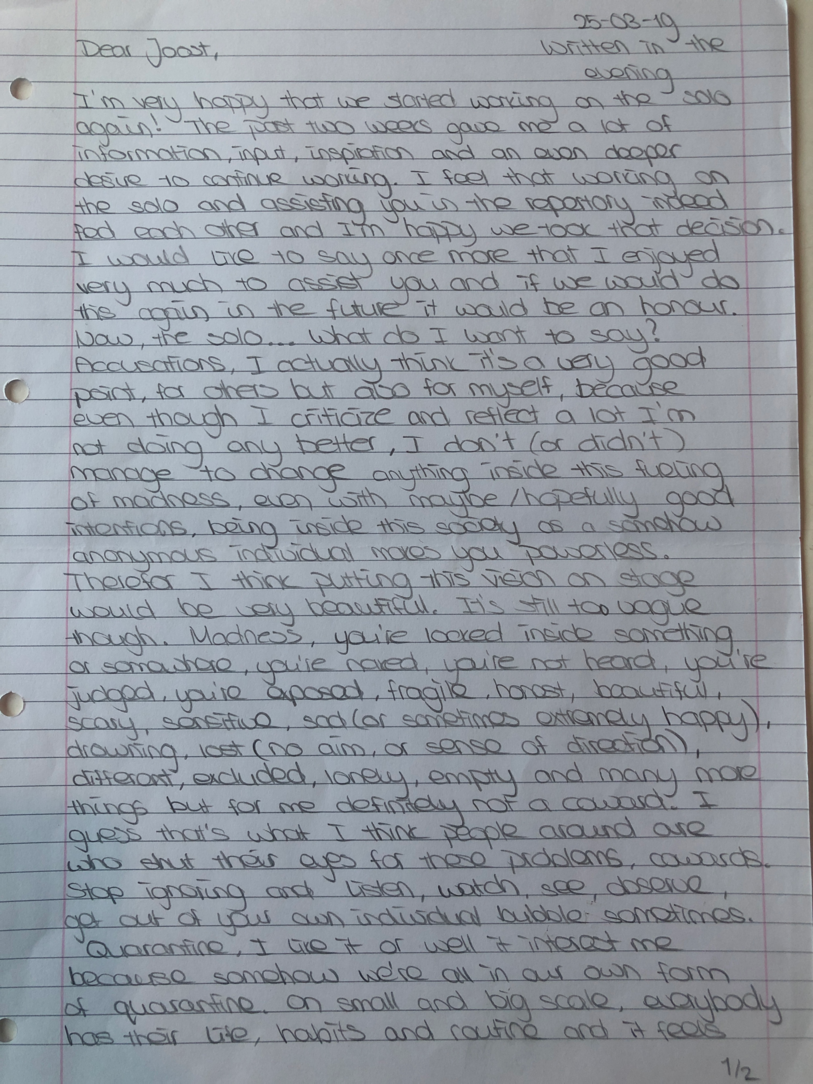 25-08-19
Dear Joost, Written in the
evening
I'm very happy that we started working on the solo
again! The past two weeks gave me a lot of
information, input, inspiration and an even deeper
desire to continue working. I feel that working on
the solo and assisting you in the repertory indeed
fed each other and I'm happy we took that decision.
I would like to say once more that I enjoyed
very much to assist you and if we would do
this again in the future it would be an honour.
Now, the solo... what do I want to say?
Accusations, I actually think it's a very good
point, for others but also for myself, because
even though I criticize and reflect a lot I'm
not doing any better, I don't (or didn't)
manage to change anything inside this fueling
of madness, even with maybe/hopefully good
intentions, being inside this society as a somehow
anonymous individual makes you powerless.
Therefor I think putting this vision on stage
would be very beautiful. It's still too vague
though. Madness, you're locked inside something
or somewhere, you're naked, you're not heard, you're
judged, you're exposed, fragile, honest, beautiful,
scary, sensitive, sad (or sometimes extremely happy),
drowning, lost (no aim, or sense of direction),
different, excluded, lonely, empty and many more
things but for me definitely not a coward. I
guess that's what I think people around are
who shut their eyes for these problems, cowards.
Stop ignoring and listen, watch, see, observe,
get out of your own individual bubble sometimes.
Quarantine, I like it or well it interest me
because somehow we're all in our own form
of quarantine. On small and big scale, everybody
has their life, habits and routine and it feels
1/2